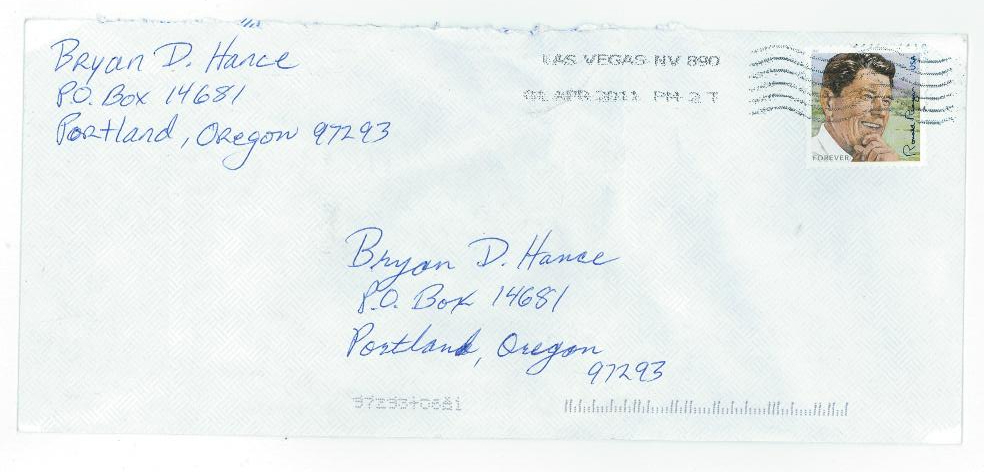 Bryan D. Hance
P.O. Box 14681
Portland, Oregon 97293
LAS VEGAS NV 890
01 APR 2011 PM 2 T
USA
Ronald Reagan
FOREVER
Bryan D. Hance
P.O. Box 14681
Portland, Oregon
97293